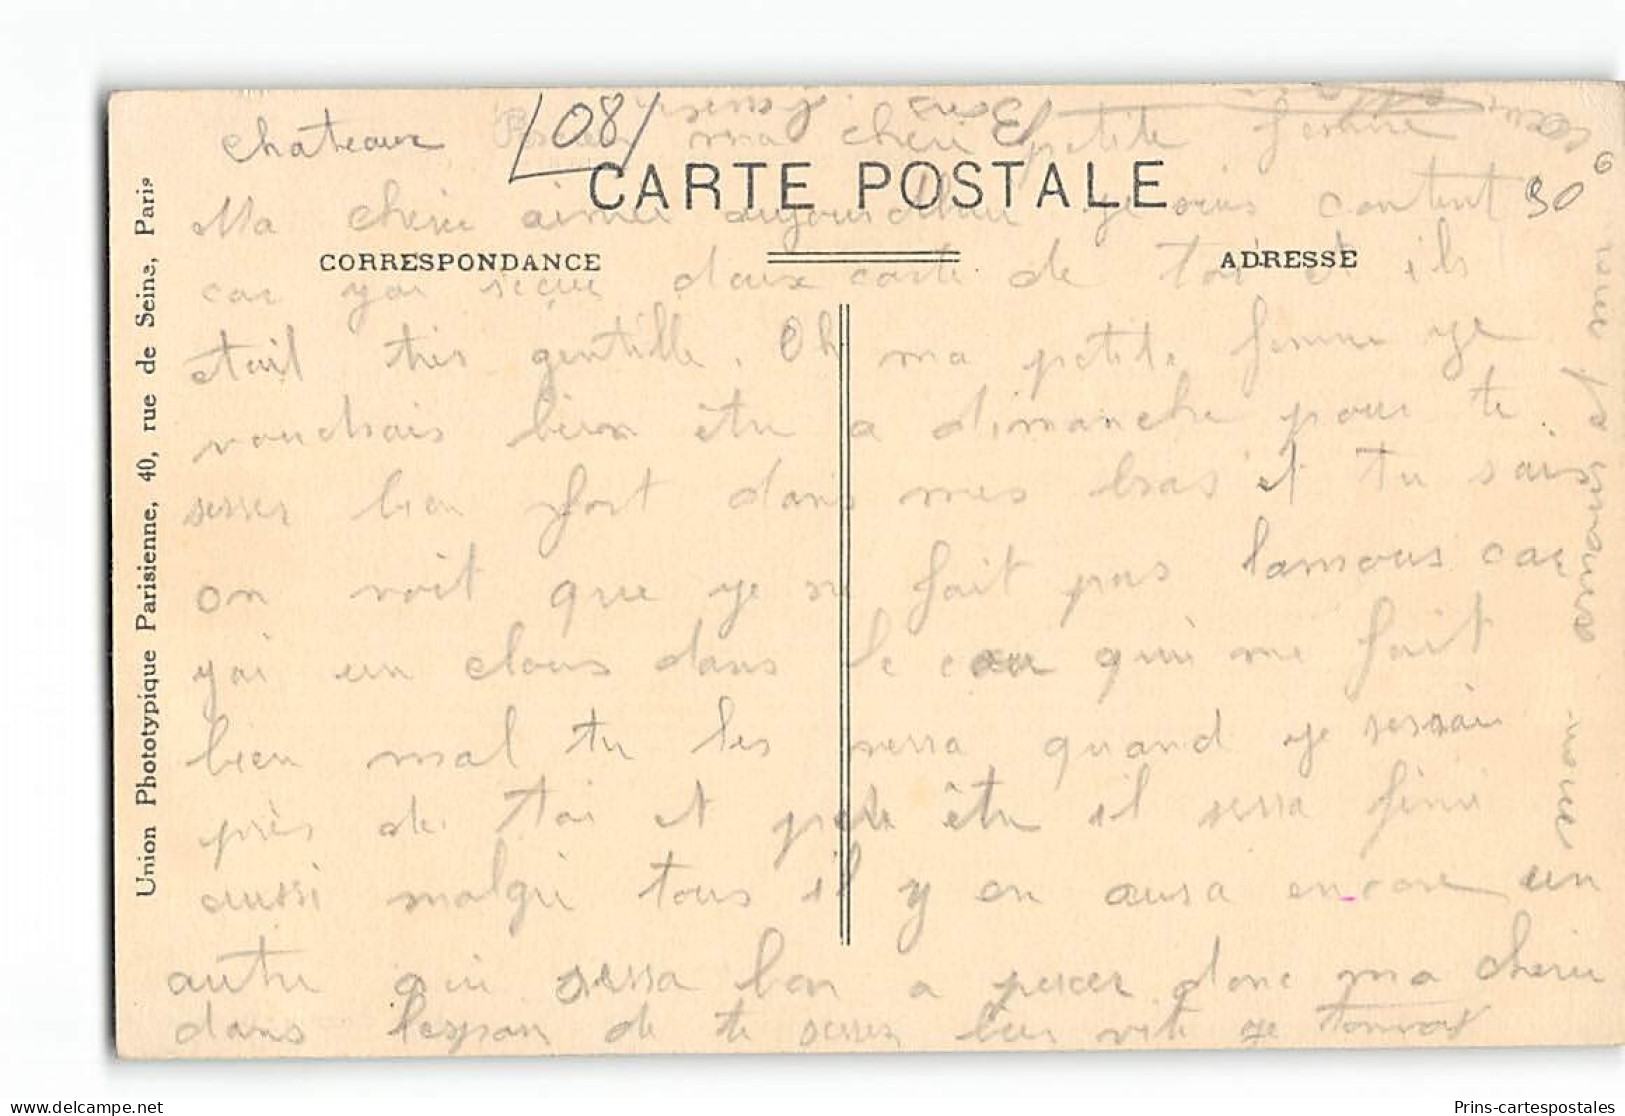 chateaux
(08)
ma cheri petite femme
CARTE POSTALE
30
Ma cherie aimée aujourdhui je suis content
CORRESPONDANCE
ADRESSE
car yai reçue deux carte de toi et ils
etait tres gentille. Oh ma petite femme ye
voudrais bien être a dimanche pour te
serrer bien fort dans mes bras et tu sais
on voit que ye ne fait pas lamour car
yai un clous dans le qui me fait
bien mal tu les verra quand ye serrai
près de toi et être il serra fini
aussi malgré tous il y en aura encore un
autre qui serra bon a percer donc ma cherie
dans lespoir de te serrer bien vite je
Union Phototypique Parisienne, 40, rue de Seine, Paris
Prins-cartespostales
www.delcampe.net